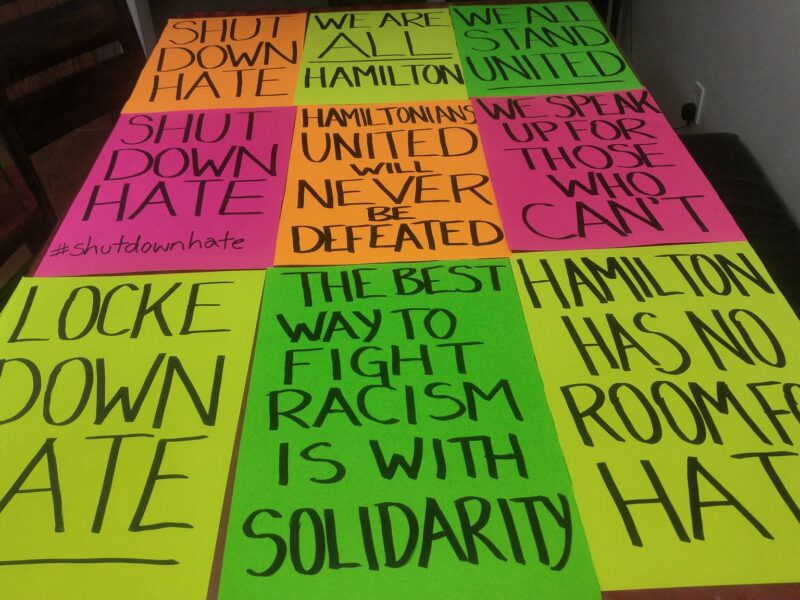 SHUT
DOWN
HATE
WE ARE
ALL
HAMILTON
WE ALL
STAND
UNITED
SHUT
DOWN
HATE
#shutdownhate
HAMILTONIANS
UNITED
WILL
NEVER
BE
DEFEATED
WE SPEAK
UP FOR
THOSE
WHO
CAN'T
LOCKE
DOWN
ATE
THE BEST
WAY TO
FIGHT
RACISM
IS WITH
SOLIDARITY
HAMILTON
HAS NO
ROOM FO
HAT